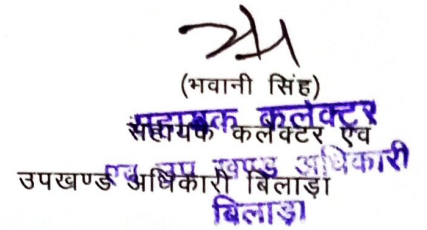 (भवानी सिंह)
सहायक कलेक्टर
सहायक कलेक्टर एवं
एवं उप खण्ड अधिकारी
उपखण्ड अधिकारी बिलाड़ा
बिलाड़ा